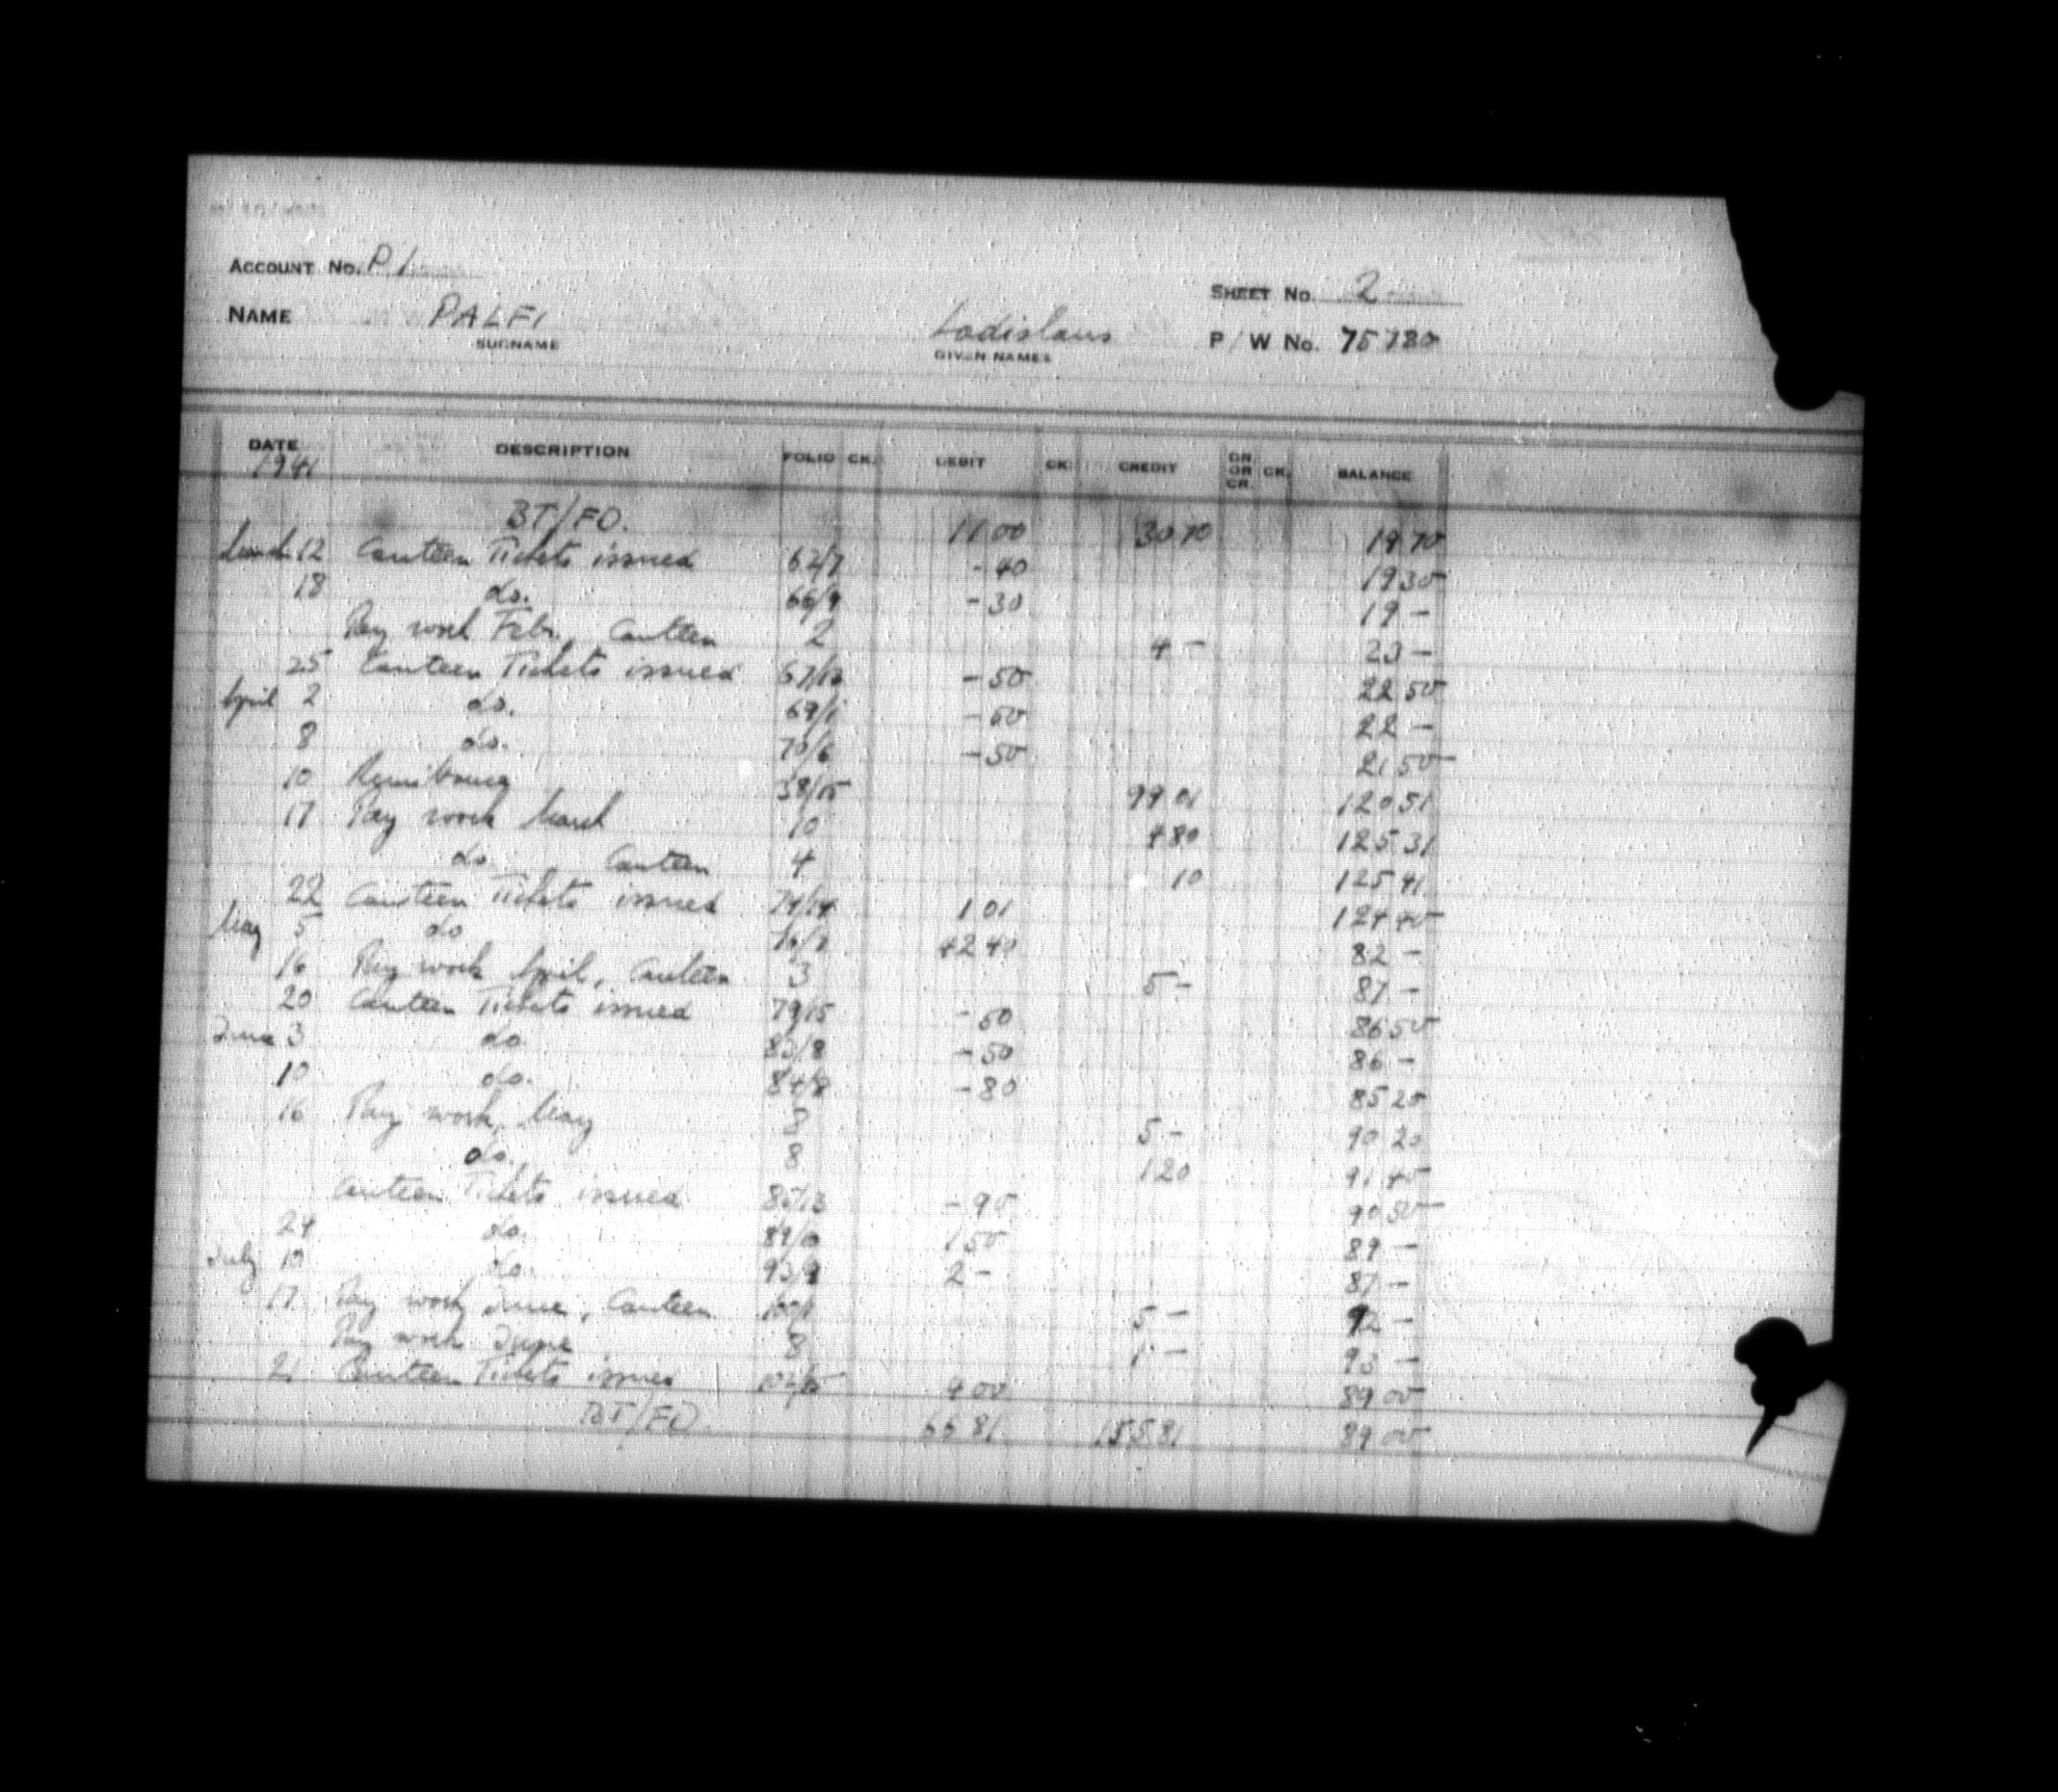 ACCOUNT No. P1
SHEET No. 2
NAME PALFI Ladislaus P/W No. 75780
SURNAME GIVEN NAMES
DATE DESCRIPTION FOLIO CK. DEBIT CK. CREDIT DR. OR CR. CK. BALANCE
1941
BT/FD. 11 00 30 70 19 70
March 12 Canteen Tickets issued 62/7 - 40 19 30
18 do. 66/9 - 30 19 -
Pay work Febr., Canteen 2 4 - 23 -
25 Canteen Tickets issued 67/13 - 50 22 50
April 2 do. 69/1 - 50 22 -
8 do. 70/6 - 50 21 50
10 Remittance 38/15 99 01 120 51
17 Pay work March 10 4 80 125 31
do. Canteen 4 10 125 41
22 Canteen Tickets issued 74/14 1 01 124 40
May 5 do 42 40 82 -
16 Pay work April, Canteen 3 5 - 87 -
20 Canteen Tickets issued 79/15 - 50 86 50
June 3 do. 83/8 - 50 86 -
10 do. 84/8 - 80 85 20
16 Pay work, May 8 5 - 90 20
do. 8 1 20 91 40
Canteen Tickets issued 85/13 - 90 90 50
24 do. 89/10 1 50 89 -
July 10 do. 93/9 2 - 87 -
17 Pay work June, Canteen 5 - 92 -
Pay work June 8 1 - 93 -
21 Canteen Tickets issued 4 00 89 00
BT/FD. 66 81 155 81 89 00